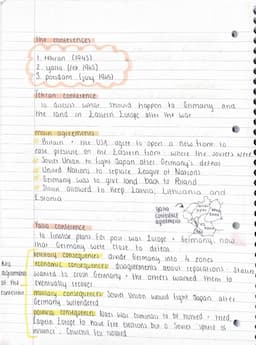 The conferences
1. Tehran (1943)
2. Yalta (Feb 1945)
3. Potsdam (July 1945)
Tehran conference
to discuss what should happen to Germany and
the land in Eastern Europe after the war
main agreements
Britain + the USA agree to open a new front to
ease pressure on the Eastern front where the soviets were
Soviet Union to fight Japan after Germany's defeat
United Nations to replace League of Nations
Germany was to give land back to Poland
Stalin allowed to keep Latvia, Lithuania and
Estonia
Yalta
conference
agreement
Yalta conference
to finalise plans for post war Europe + Germany now
that Germany were close to defeat
territory consequences: divide Germany into 4 zones
economic consequences: disagreements about reparations. Stalin
wanted to crush Germany + the others wanted them to
eventually recover
military consequences: Soviet Union would fight Japan after
Germany surrendered
political consequences: Nazis was criminals to be hunted + tried
Eastern Europe to have free elections but a Soviet sphere of
influence
Key
agreements
of the
conference